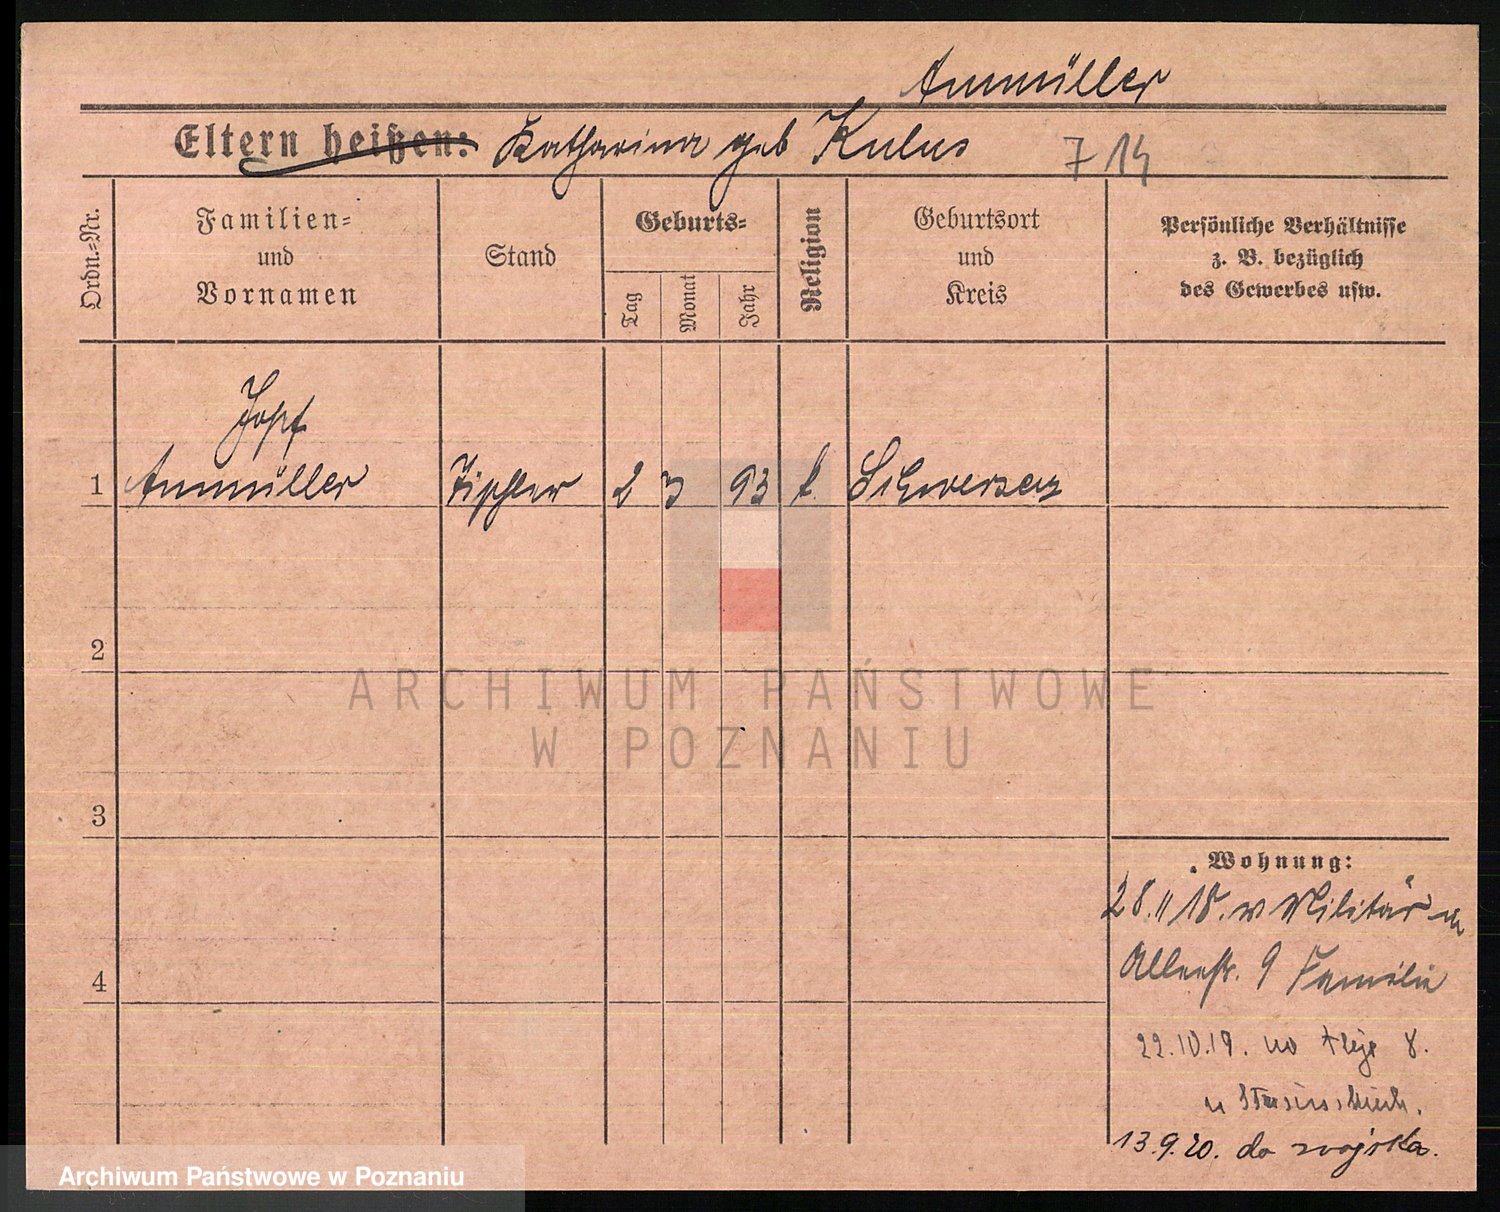 Anmüller
Eltern heißen: Katharina geb Kulus 714
Ordn.=Nr.
Familien=
und
Vornamen
Stand
Geburts=
Tag
Monat
Jahr
Religion
Geburtsort
und
Kreis
Persönliche Verhältnisse
z. B. bezüglich
des Gewerbes usw.
Josef
1 Anmüller Tischler 2 3 93 k. Schwersenz
2
ARCHIWUM PAŃSTWOWE
W POZNANIU
3
Wohnung:
28. 11 18. v Militär n
Alleestr. 9 Familie
4
22.10.19. 8.
u
13.9.20. do wojska.
Archiwum Państwowe w Poznaniu